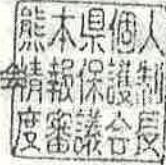 熊本県個人
情報保護制
度審議会長